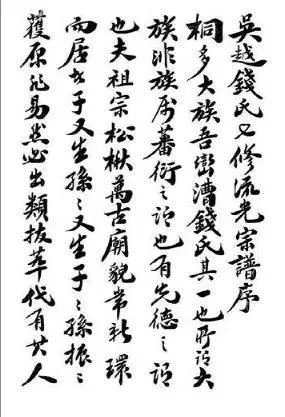 吳越錢氏七修流光宗譜序
桐多大族吾巒漕錢氏其一也所謂大
族非族屬蕃衍之謂也有先德之謂
也夫祖宗松楸萬古廟貌常新環
而居者子又生孫〻又生子〻孫振〻
蕃原非易然必出類拔萃代有其人